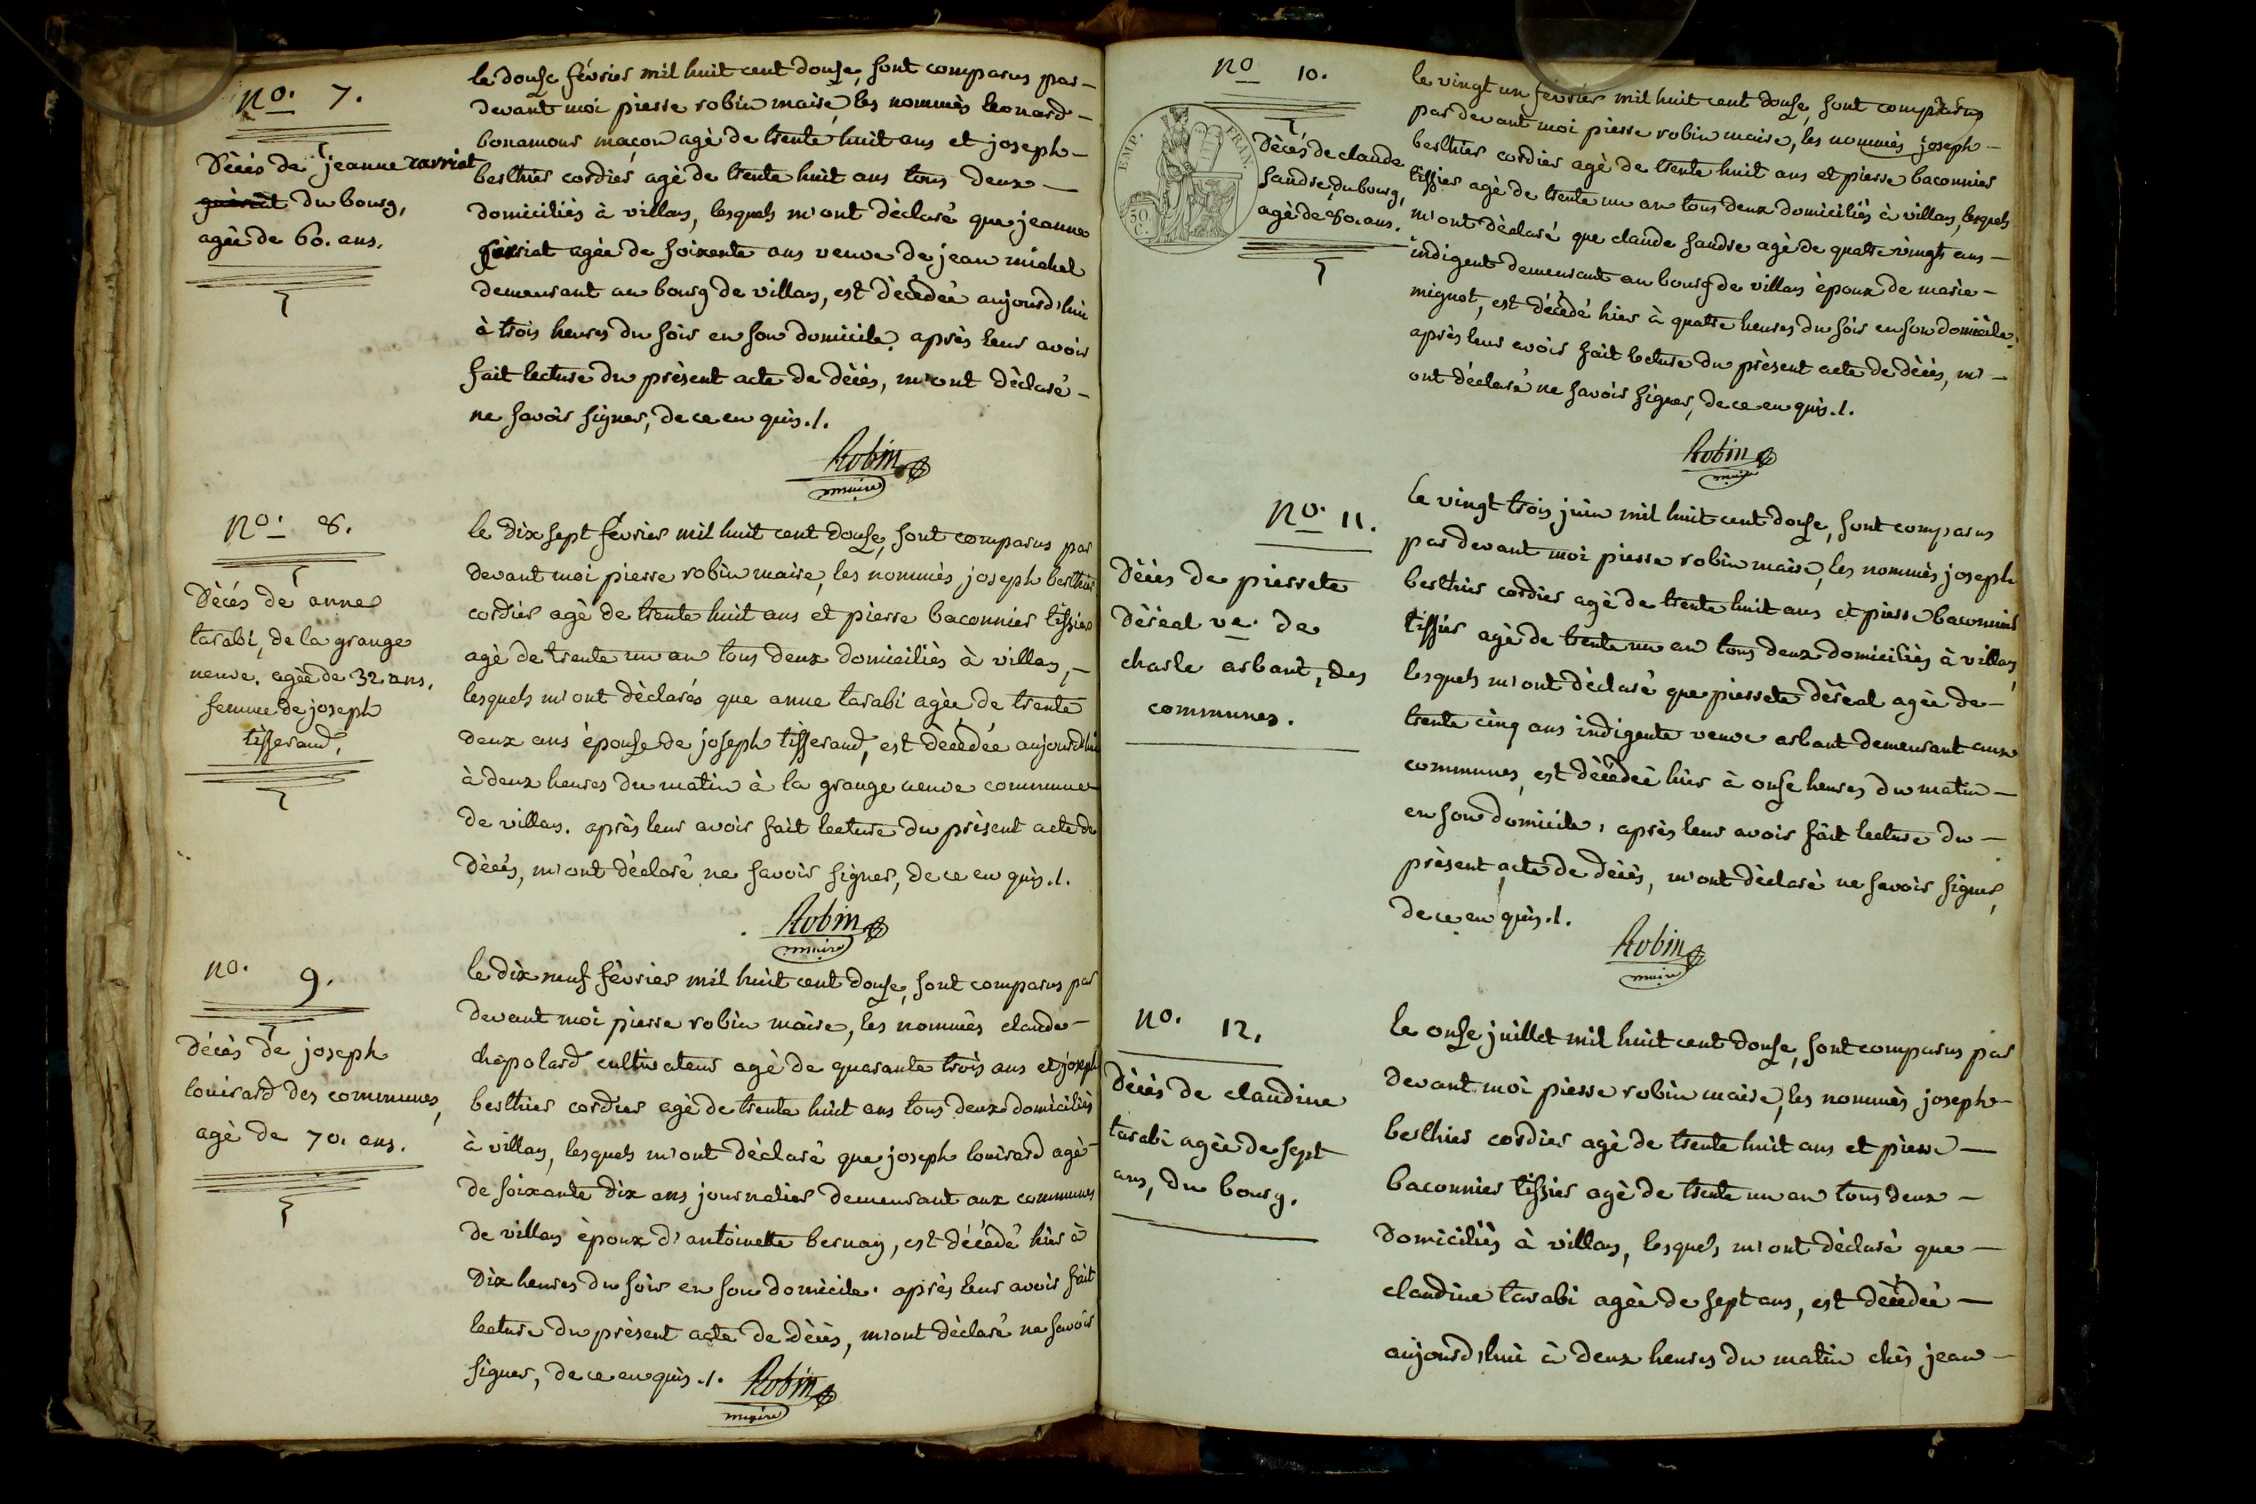 no. 7.
Décès de jeanne ravriat
du bourg,
agée de 60. ans.
le douse février mil huit cent douse, sont comparus par-
devant moi pierre robin maire, les nommés leonard-
bonamour maçon agé de trente huit ans et joseph-
berthier cordier agé de trente huit ans tous deux-
domiciliés à villars, lesquels m'ont déclaré que jeanne
agée de soixante ans veuve de jean michel
demeurant au bourg de villars, est décédée aujourd'hui
à trois heures du soir en son domicile. après leur avoir
fait lecture du présent acte de décès, m'ont déclaré-
ne savoir signer, de ce enquis./.
Robin
maire
no. 8.
Décès de anne
tarabi, de la grange
neuve. agée de 32 ans,
femme de joseph
tisserand.
le dix sept février mil huit cent douse, sont comparus par
devant moi pierre robin maire, les nommés joseph berthier
cordier agé de trente huit ans et pierre baconnier tissier
agé de trente un an tous deux domiciliés à villars,-
lesquels m'ont déclarés que anne tarabi agée de trente
deux ans épouse de joseph tisserand, est décédée aujourd'hui
à deux heures du matin à la grange neuve commune
de villars. après leur avoir fait lecture du présent acte de
décès, m'ont déclaré ne savoir signer, de ce enquis./.
Robin
maire
no. 9.
Décès de joseph
louirard des communes,
agé de 70. ans.
le dix neuf février mil huit cent douse, sont comparus par
devant moi pierre robin maire, les nommés claude-
chapolard cultivateur agé de quarante trois ans et joseph
berthier cordier agé de trente huit ans tous deux domiciliés
à villars, lesquels m'ont déclaré que joseph louirard agé-
de soixante dix ans journalier demeurant aux communes
de villars époux d'antoinette bernay, est décédé hier à
dix heures du soir en son domicile. après leur avoir fait
lecture du présent acte de décès, m'ont déclaré ne savoir
signer, de ce enquis./. Robin
maire
no 10.
TEMP. FRAN
50. C.
Décès de claude
sandre, du bourg,
agé de 80. ans.
le vingt un février mil huit cent douse, sont comparus
par devant moi pierre robin maire, les nommés joseph-
berthier cordier agé de trente huit ans et pierre baconnier
tissier agé de trente un an tous deux domiciliés à villars, lesquels
m'ont déclaré que claude sandre agé de quatre vingts ans-
indigent demeurant au bourg de villars époux de marie-
mignot, est décédé hier à quatre heures du soir en son domicile.
après leur avoir fait lecture du présent acte de décès, m'-
ont déclaré ne savoir signer, de ce enquis./.
Robin
maire
no. 11.
Décès de pierrete
déréal ve. de
charle arbant, des
communes.
le vingt trois juin mil huit cent douse, sont comparus
par devant moi pierre robin maire, les nommés joseph
berthier cordier agé de trente huit ans et pierre baconnier
tissier agé de trente un an tous deux domiciliés à villars,
lesquels m'ont déclaré que pierrete déréal agée de-
trente cinq ans indigente veuve arbant demeurant aux
communes, est décédée hier à onse heures du matin-
en son domicile, après leur avoir fait lecture du-
présent acte de décès, m'ont déclaré ne savoir signer,
de ce enquis./.
Robin
maire
no. 12.
Décès de claudine
tarabi agée de sept
ans, du bourg.
le onse juillet mil huit cent douse, sont comparus par
devant moi pierre robin maire, les nommés joseph-
berthier cordier agé de trente huit ans et pierre-
baconnier tissier agé de trente un an tous deux-
domiciliés à villars, lesquels m'ont déclaré que-
claudine tarabi agée de sept ans, est décédée-
aujourd'hui à deux heures du matin chés jean-